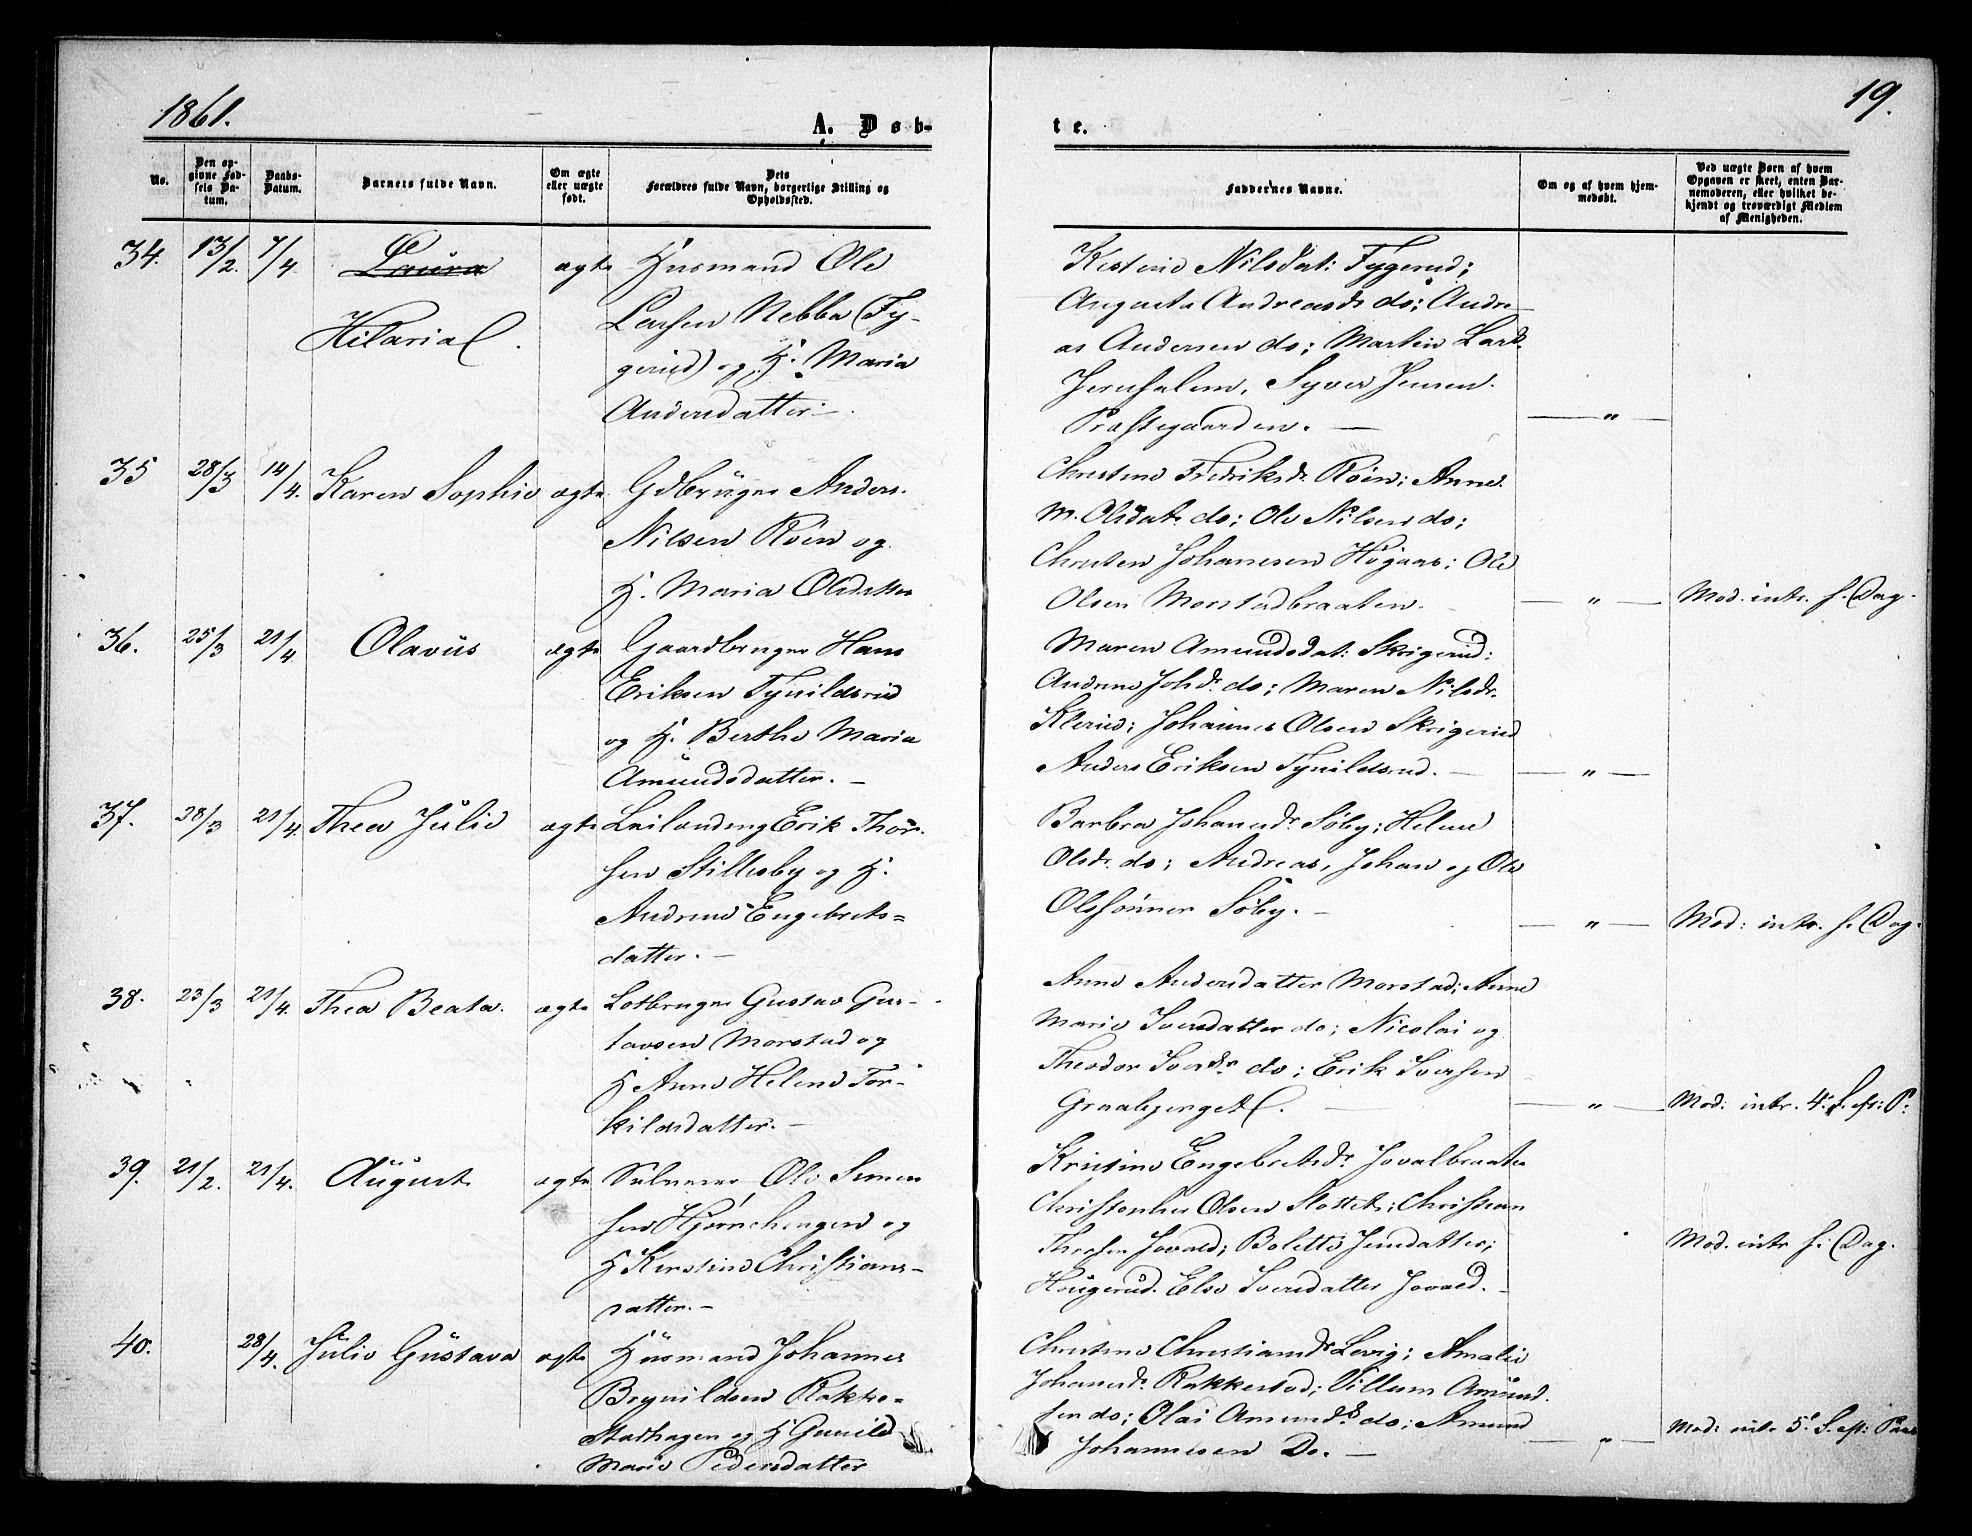 1861.
19.
A. Døb-
te.
No.
Den op-
givne Fød-
sels Da-
tum.
Daabs-
Datum.
Barnets fulde Navn.
Om ægte
eller uægte
født.
Dets
Forældres fulde Navn, borgerlige Stilling og
Opholdssted.
Faddernes Navne.
Om og af hvem hjem-
medøbt.
Ved uægte Børn af hvem
Opgaven er skeet, enten Bar-
nemoderen, eller hvilket be-
kjendt og troværdigt Medlem
af Menigheden.
34. 13/2. 7/4. Laura ægte Husmand Ole
Hilaria
Larsen Nebba (Fy-
gerud) og H. Maria
Andersdatter. –
Kistine Nilsdat: Fygerud;
Augusta Andreasdr do; Andre-
as Andersen do; Martin Lars.
Jerusalem, Syver Jensen
Præstegaarden. —
— " —
35 28/3 14/4. Karen Sophie ægte Gdbruger Anders
Nilsen Röen og
H. Maria Olsdatter
Christine Fredriksdr Röen; Anne
M. Olsdatr do; Ole Nilsen do;
Christen Johanesen Högaas; Ole
Olsen Morstadbraaten.
— " — Mod. intr. s. Dag.
36. 25/3 21/4 Olavus ægte Gaardbruger Hans
Eriksen Tynildsrud
og H. Berthe Maria
Amundsdatter. –
Maren Amundsdat: Skrigerud;
Andrine Johsdr do; Maren Nilsdr.
Klerud; Johannes Olsen Skrigerud
Anders Eriksen Tynildsrud. —
— " —
37. 28/3 21/4. Thea Julie ægte Leilending Erik Thor-
sen Stillesby og H.
Andrine Engebrets=
datter. –
Barbra Johansdr Söby; Helene
Olsdr do; Andreas, Johan og Ole
Olssönner Söby. –
— " — Mod: intr. s. Dag.
38. 23/3 21/4. Thea Beata. ægte Lotbruger Gustav Gus-
tavsen Morstad og
H Anne Helene Tor-
kildsdatter. –
Anne Andersdatter Morstad; Anne
Marie Iversdatter do; Nicolai og
Theodor Iversr do; Erik Iversen
Graabjerget.
— " — Mod: intr. 4de S. eft: P:
39. 21/2. 21/4. August ægte Selveier Ole Simen
sen Hjörnehengen og
H Kirstine Christians-
datter. –
Kristine Engebretsdr Jovalbraate
Christopher Olsen Slottet; Christian
Jovald; Bolette Jensdatter;
Haugerud. Else Iversdatter Jovald. –
Mod. intr s. Dag.
40. 28/4. Julie Gustava ægte Husmand Johannes
Brynildsen Rakke-
stadhagen og H Gunild
Marie Pedersdatter
Christine Christiansdr Levig; Amalie
Johansdr Rakkestad; Villum Amund.
sen do; Olai Amunds do; Amund
Johannesen Do. —
— " — Mod: intr 5te S. eft: Paas